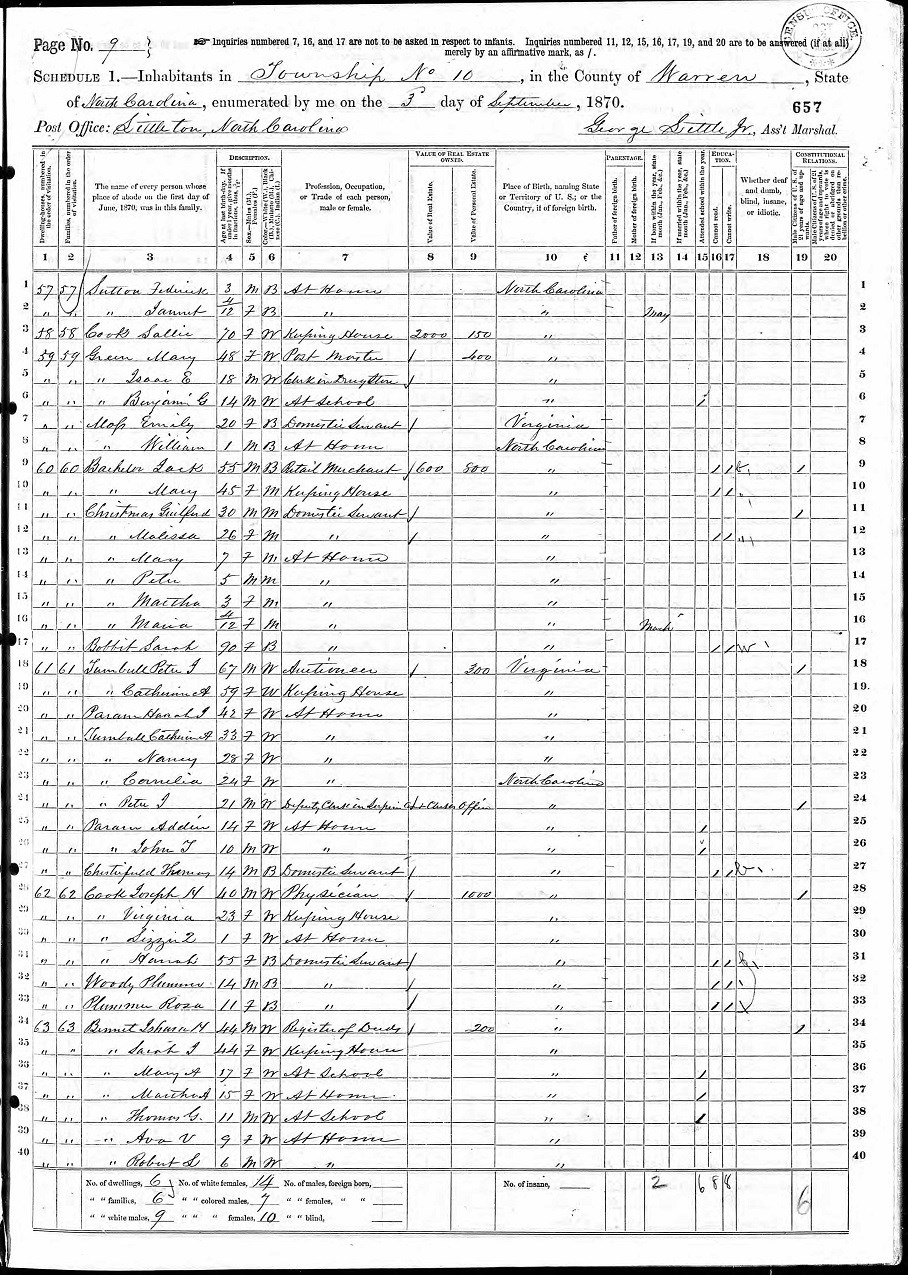 Page No. 9
☞ Inquiries numbered 7, 16, and 17 are not to be asked in respect to infants. Inquiries numbered 11, 12, 15, 16, 17, 19, and 20 are to be answered (if at all)
merely by an affirmative mark, as /.
CENSUS OFFICE
SCHEDULE 1.—Inhabitants in Township No 10, in the County of Warren, State
of North Carolina, enumerated by me on the day of September, 1870.
657
Post Office: Littleton, North Carolina George Little Jr., Ass't Marshal.
DESCRIPTION. VALUE OF REAL ESTATE OWNED. PARENTAGE. EDUCATION. CONSTITUTIONAL RELATIONS.
Dwelling-houses, numbered in the order of visitation.
Families, numbered in the order of visitation.
The name of every person whose place of abode on the first day of June, 1870, was in this family.
Profession, Occupation, or Trade of each person, male or female.
Value of Real Estate.
Value of Personal Estate.
Place of Birth, naming State or Territory of U. S.; or the Country, if of foreign birth.
Father of foreign birth.
Mother of foreign birth.
Attended school within the year.
Cannot read.
Cannot write.
Whether deaf and dumb, blind, insane, or idiotic.
1 2 3 4 5 6 7 8 9 10 11 12 13 14 15 16 17 18 19 20
1 57 57 Sutton 3 M B At Home North Carolina 1
2 " " " 4/12 F B " " May 2
3 58 58 Cook Sallie 70 F W Keeping House 2000 150 " 3
4 59 59 Green Mary 48 F W Post Master / 400 " 4
5 " " " Isaac E 18 M W Clerk in Drug Store / " 5
6 " " " Benjamin G 14 M W At School " / 6
7 " " Moss Emily 20 F B Domestic Servant / Virginia 7
8 " " " William 1 M B At Home North Carolina 8
9 60 60 Bachelor Jack 55 M B Retail Merchant / 600 800 " / / / 9
10 " " " Mary 45 F M Keeping House " / / 10
11 " " Christmas Guilford 30 M M Domestic Servant / " / 11
12 " " " Malissa 26 F M " / " / / 12
13 " " " Mary 7 F M At Home " 13
14 " " " Peter 5 M M " " 14
15 " " " Martha 3 F M " " 15
16 " " " Maria 4/12 F M " " March 16
17 " " Bobbit Sarah 90 F B " " / / 17
18 61 61 Turnbull Peter J 67 M W Auctioneer / 300 Virginia / 18
19 " " " Catherine A 59 F W Keeping House " 19
20 " " Param Hanah J 42 F W At Home " 20
21 " " Turnbull Catherine A 33 F W " " 21
22 " " " Nancy 28 F W " " 22
23 " " " Cornelia 24 F W " North Carolina 23
24 " " " Peter J 21 M W Deputy Clerk in Office " / 24
25 " " Param 14 F W At Home " / 25
26 " " " John T 10 M W " " / 26
27 " " Chesterfield Thomas 14 M B Domestic Servant / " / / 27
28 62 62 Cook Joseph H 40 M W Physician / 1000 " / 28
29 " " " Virginia 23 F W Keeping House " 29
30 " " " Lizzie 1 F W At Home " 30
31 " " " Hannah 55 F B Domestic Servant / " / / 31
32 " " Woody Plummer 14 M B " / " / / 32
33 " " Plummer Rosa 11 F B " / " / / 33
34 63 63 44 M W Register of Deeds / 200 " / 34
35 " " " Sarah J 44 F W Keeping House " 35
36 " " " Mary A 17 F W At School " / 36
37 " " " Martha A 15 F W At Home " / 37
38 " " " Thomas G. 11 M W At School " / 38
39 " " " Ava V 9 F W At Home " 39
40 " " " Robert L 6 M W " " 40
No. of dwellings, 6 No. of white females, 14 No. of males, foreign born, No. of insane, 2 6 8 8
" " families, 6 " " colored males, 7 " " females, " " 6
" " white males, 9 " " " females, 10 " " blind,